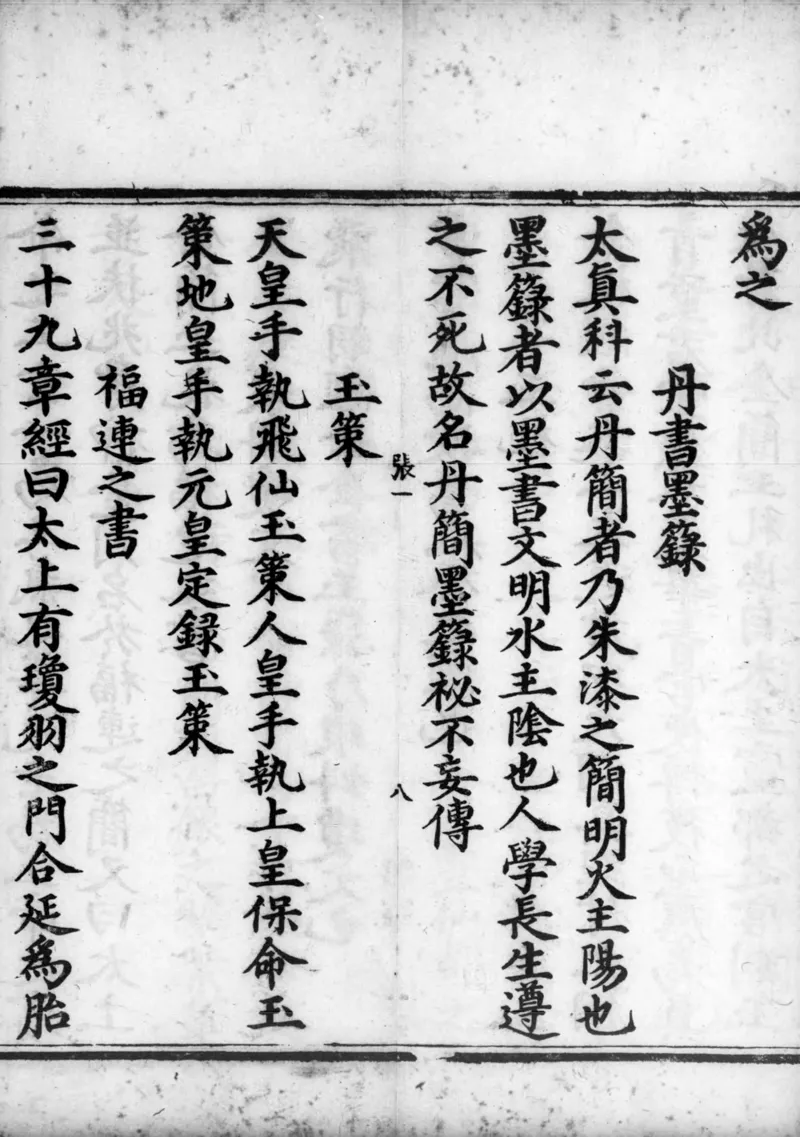 爲之
丹書墨籙
太眞科云丹簡者乃朱漆之簡明火主陽也
墨籙者以墨書文明水主陰也人學長生遵
之不死故名丹簡墨籙祕不妄傳
張一
八
玉策
天皇手執飛仙玉策人皇手執上皇保命玉
策地皇手執元皇定録玉策
福連之書
三十九章經曰太上有瓊羽之門合延爲胎